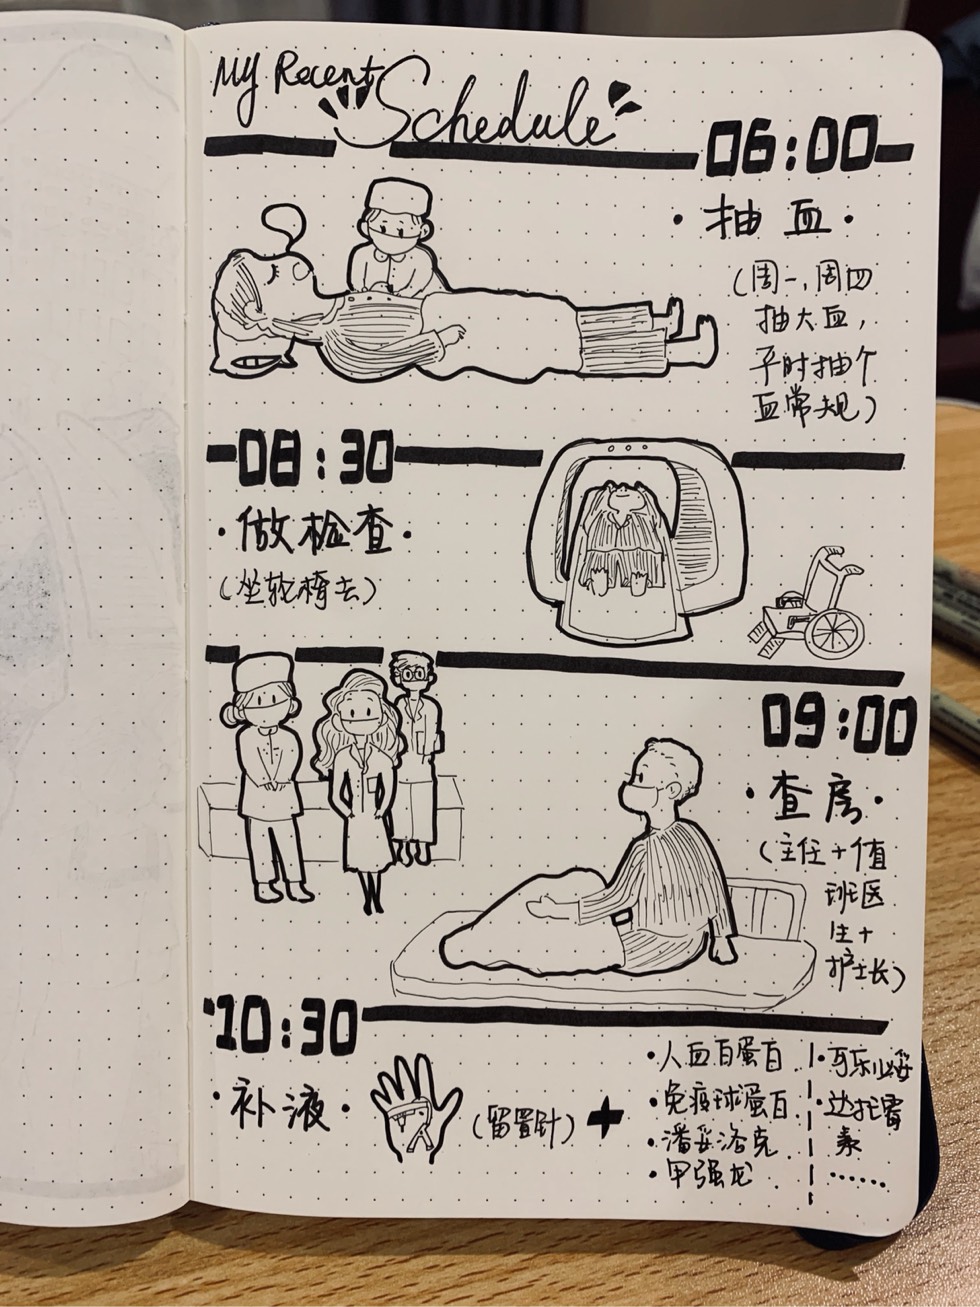 My Recent Schedule
06:00
·抽血·
(周一,周四
抽大血,
平时抽个
血常规)
08:30
·做检查·
(坐轮椅去)
09:00
·查房·
(主任+值
班医
生+
护士长)
10:30
·补液·
(留置针)
+
·人血白蛋白
·免疫球蛋白
·潘妥洛克
·甲强龙
·可乐必妥
·达托霉
素
······